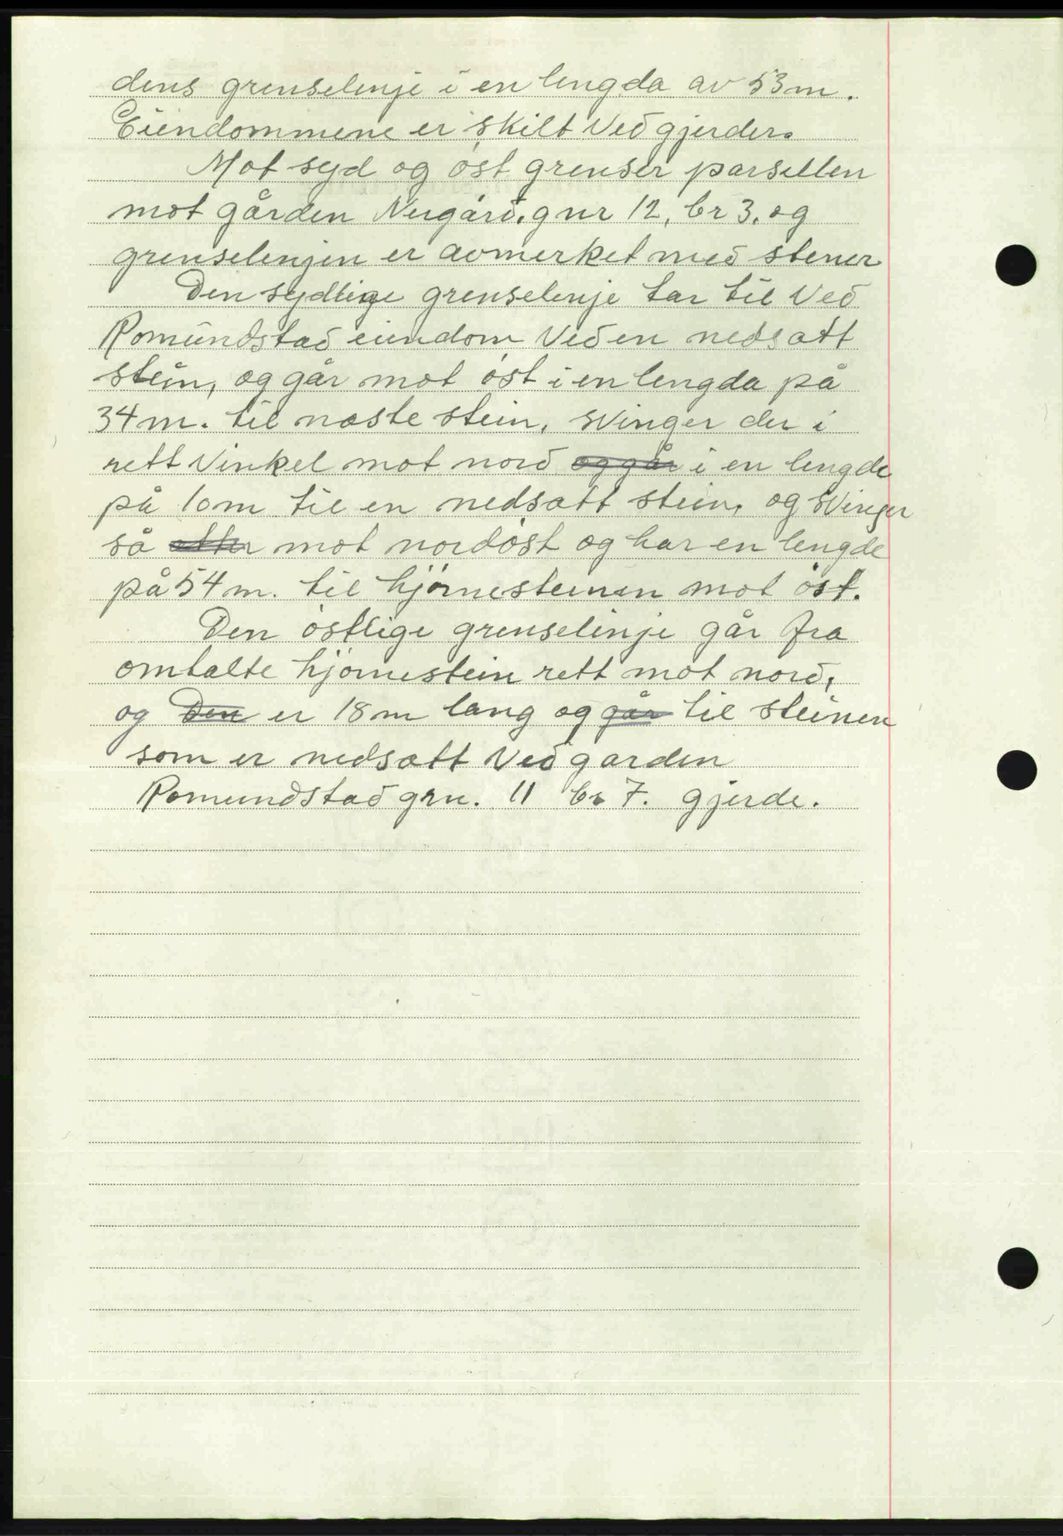 dens grenselinje i en lengda av 53m.
Eiendommene er skilt ved gjerder.
Mot syd og øst grenser parsellen
mot gården Nugård. gnr 12, br 3. og
grenselinjen er avmerket med stener
Den sydlige grenselinje tar til ved
Romundstad eiendom ved en nedsatt
stein, og går mot øst i en lengda på
34m. til næste stein, svinger der i
rett vinkel mot nord og går i en lengde
på 10m til en nedsatt stein, og svinger
så etter mot nordøst og har en lengde
på 54m. til hjørnesteinen mot øst.
Den østlige grenselinje går fra
omtalte hjørnestein rett mot nord,
og Den er 18m lang og går til steinen
som er nedsatt ved garden
Romundstad grn. 11 br 7. gjerde.